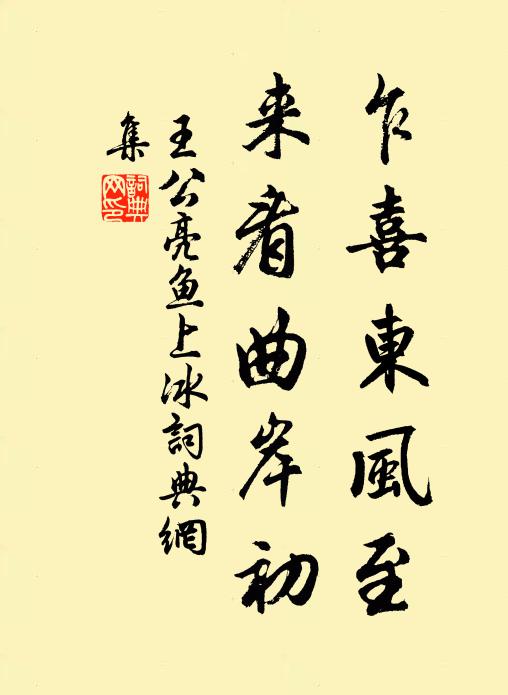 乍喜東風至
来看曲岸初
王公亮魚上冰詞典網
集
詞典網印